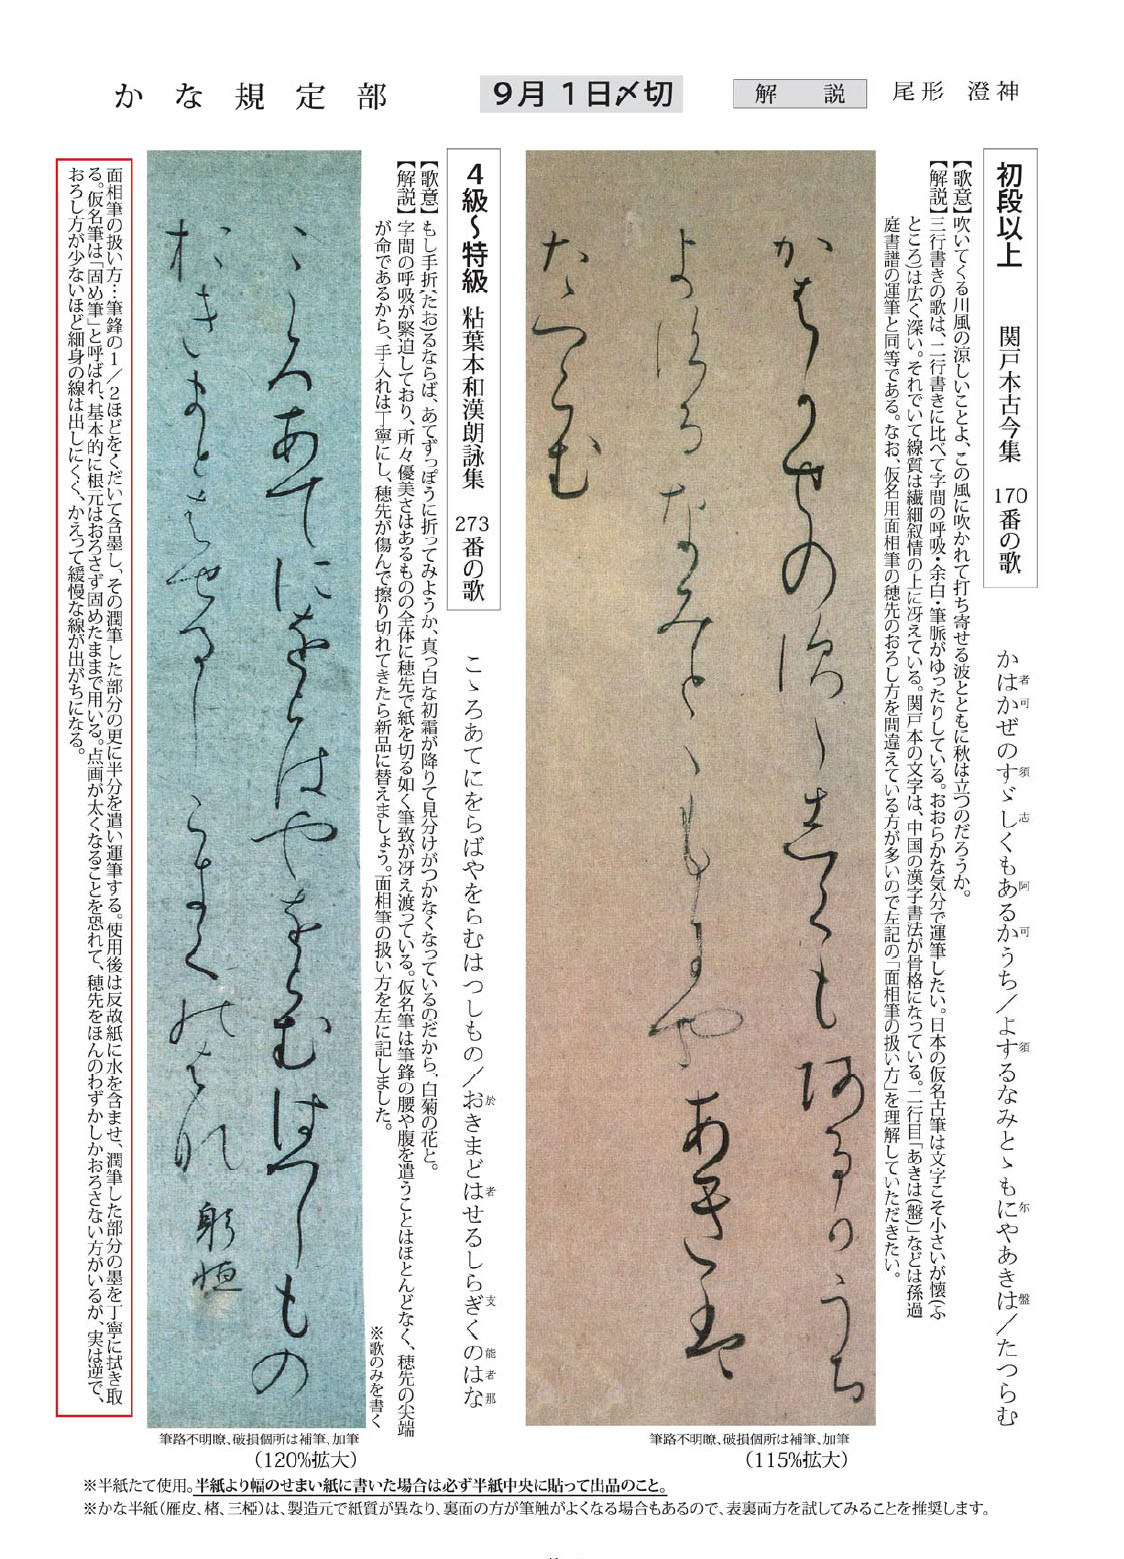 かな規定部
9月1日〆切
解説
尾形 澄神
初段以上 関戸本古今集 170番の歌
かはかぜのすゞしくもあるかうち/よするなみとゝもにやあきは/たつらむ
者可須志阿可須尓盤
【歌意】吹いてくる川風の涼しいことよ、この風に吹かれて打ち寄せる波とともに秋は立つのだろうか。
【解説】三行書きの歌は、二行書きに比べて字間の呼吸・余白・筆脈がゆったりしている。おおらかな気分で運筆したい。日本の仮名古筆は文字こそ小さいが懐(ふ
ところ)は広く深い。それでいて線質は繊細叙情の上に冴えている。関戸本の文字は、中国の漢字書法が骨格になっている。二行目「あきは(盤)」などは孫過
庭書譜の運筆と同等である。なお、仮名用面相筆の穂先のおろし方を間違えている方が多いので左記の「面相筆の扱い方」を理解していただきたい。
かはかせの須ゝ志くも阿るかうち
よ須るなみとゝも尓やあき盤
たつらむ
筆路不明瞭、破損個所は補筆、加筆
(115%拡大)
4級〜特級 粘葉本和漢朗詠集 273番の歌
こゝろあてにをらばやをらむはつしもの/おきまどはせるしらぎくのはな
於者支能者那
【歌意】もし手折(たお)るならば、あてずっぽうに折ってみようか、真っ白な初霜が降りて見分けがつかなくなっているのだから、白菊の花と。
【解説】字間の呼吸が緊迫しており、所々優美さはあるものの全体に穂先で紙を切る如く筆致が冴え渡っている。仮名筆は筆鋒の腰や腹を遣うことはほとんどなく、穂先の尖端
が命であるから、手入れは丁寧にし、穂先が傷んで擦り切れてきたら新品に替えましょう。面相筆の扱い方を左に記しました。
※歌のみを書く
こゝろあてにをらはやをらむはつしもの
おきまとはせるしらきくのはな 躬恒
筆路不明瞭、破損個所は補筆、加筆
(120%拡大)
面相筆の扱い方…筆鋒の1/2ほどをくだいて含墨し、その潤筆した部分の更に半分を遣い運筆する。使用後は反故紙に水を含ませ、潤筆した部分の墨を丁寧に拭き取
る。仮名筆は「固め筆」と呼ばれ、基本的に根元はおろさず固めたままで用いる。点画が太くなることを恐れて、穂先をほんのわずかしかおろさない方がいるが、実は逆で、
おろし方が少ないほど細身の線は出しにくく、かえって緩慢な線が出がちになる。
※半紙たて使用。半紙より幅のせまい紙に書いた場合は必ず半紙中央に貼って出品のこと。
※かな半紙(雁皮、楮、三椏)は、製造元で紙質が異なり、裏面の方が筆触がよくなる場合もあるので、表裏両方を試してみることを推奨します。